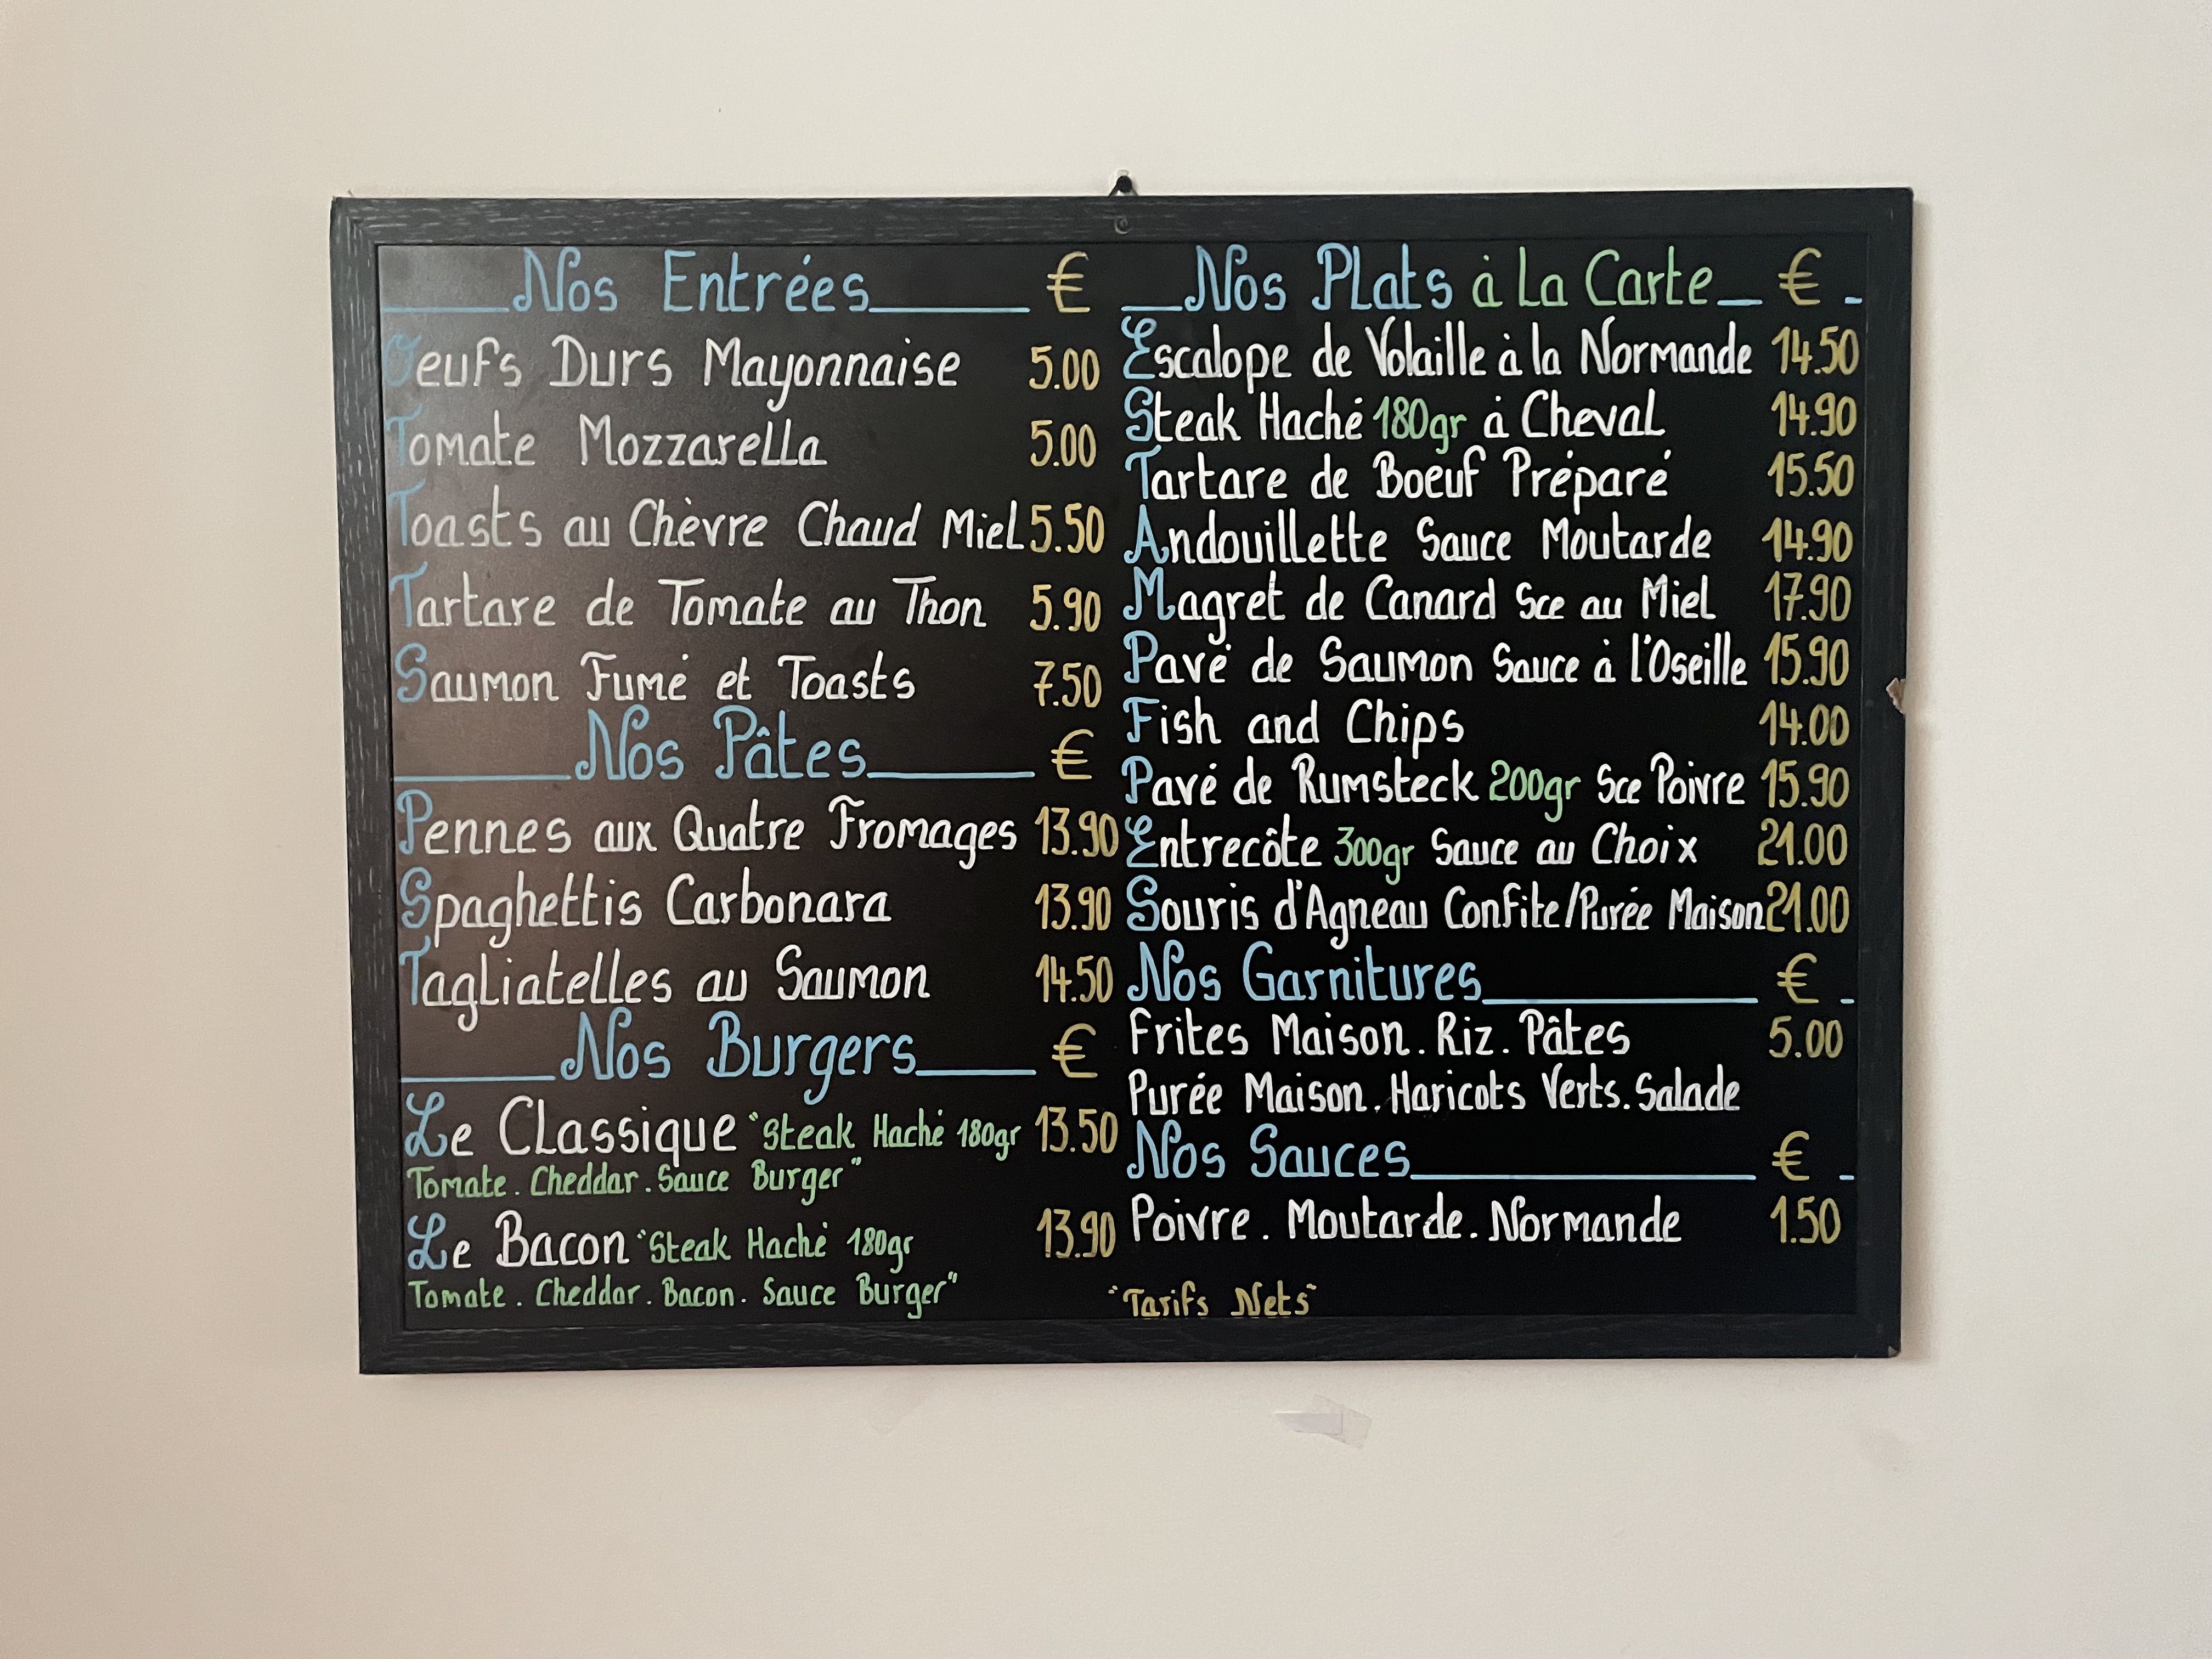 Nos Entrées €
Oeufs Durs Mayonnaise 5.00
Tomate Mozzarella 5.00
Toasts au Chèvre Chaud Miel 5.50
Tartare de Tomate au Thon 5.90
Saumon Fumé et Toasts 7.50
Nos Pâtes €
Pennes aux Quatre Fromages 13.90
Spaghettis Carbonara 13.90
Tagliatelles au Saumon 14.50
Nos Burgers €
Le Classique "Steak Haché 180gr 13.50
Tomate. Cheddar. Sauce Burger"
Le Bacon "Steak Haché 180gr 13.90
Tomate. Cheddar. Bacon. Sauce Burger"
Nos Plats à la Carte €
Escalope de Volaille à la Normande 14.50
Steak Haché 180gr à Cheval 14.90
Tartare de Boeuf Préparé 15.50
Andouillette Sauce Moutarde 14.90
Magret de Canard Sce au Miel 17.90
Pavé de Saumon Sauce à l'Oseille 15.90
Fish and Chips 14.00
Pavé de Rumsteck 200gr Sce Poivre 15.90
Entrecôte 300gr Sauce au Choix 21.00
Souris d'Agneau Confite/Purée Maison 21.00
Nos Garnitures €
Frites Maison. Riz. Pâtes 5.00
Purée Maison. Haricots Verts. Salade
Nos Sauces €
Poivre. Moutarde. Normande 1.50
"Tarifs Nets"